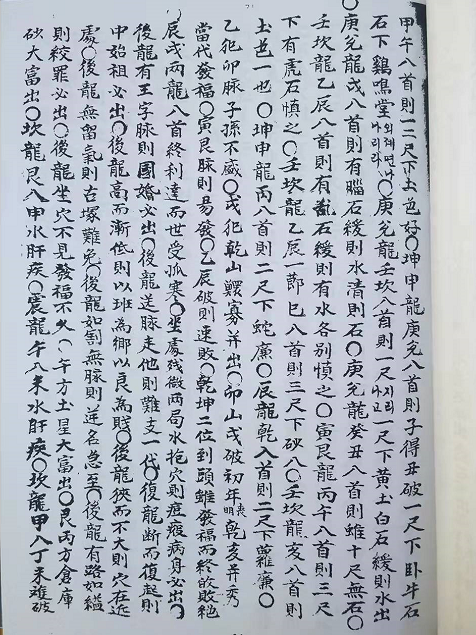 甲午八首則一二尺下土色好〇坤申龍庚兌八首則子得丑破一尺下卧牛石
石下鷄鳴堂외해면나나리라〇庚兌龍壬坎八首則一尺지리나고一尺下黄土白石緩則水出
〇庚兌龍戌八首則有腦石緩則水清則石〇庚兌龍癸丑八首則雖十尺無石〇
壬坎龍乙辰八首則有石緩則有水各別慎之〇寅艮龍丙午八首則三尺
下有虎石慎之〇壬坎龍乙辰一節巳八首則三尺下砂八〇壬坎龍亥八首則
土色一也〇坤申龍丙八首則二尺下蛇廉〇辰龍乾入首則二尺下蘿廉〇
乙犯卯脉子孫不盛〇戌犯乾山鰥寡并出〇卯山戌破初年喪明乾亥并秀
當代發福〇寅艮脉則易發〇乙辰破則速敗〇乾坤二位到頭雖發福而終敗絶
辰戌兩龍八首終利達而世受孤寒〇坐處殘微兩局水抱穴則瘟㾮病身必出〇
後龍有王字脉則國婚必出〇後龍送脉走他則難支一代〇復龍断而復起則
中始祖必出〇後龍高而漸低則以班為鄉以良為賤〇後龍狹而不大則穴在近
處〇後龍無留氣則古塚難免〇後龍如割無脉則逆名急至〇後龍有路如縊
則絞罪必出〇後龍坐穴不見發福不久〇午方土星大富出〇艮丙方倉庫
砂大富出〇坎龍艮八甲水肝疾〇震龍午八未水肝疾〇坎龍甲八丁未難破